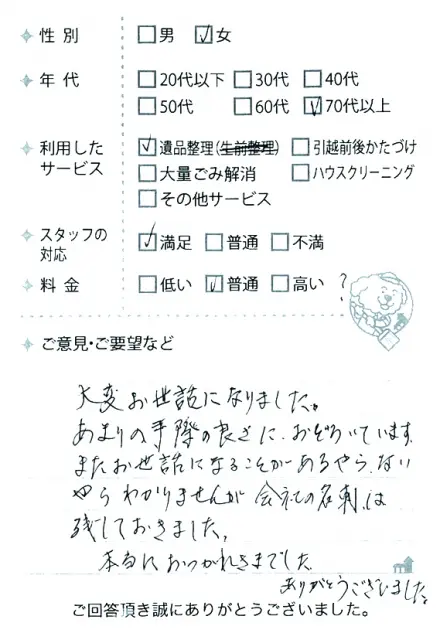 性別 □男 ☑女
年代 □20代以下 □30代 □40代
□50代 □60代 ☑70代以上
利用したサービス ☑遺品整理(生前整理) □引越前後かたづけ
□大量ごみ解消 □ハウスクリーニング
□その他サービス
スタッフの対応 ☑満足 □普通 □不満
料金 □低い ☑普通 □高い ?
ご意見・ご要望など
大変お世話になりました。
あまりの手際の良さに、おどろいています。
またお世話になることがあるやら、ない
やらわかりませんが会社の名刺は
残しておきました。
本当におつかれさまでした
ありがとうございました。
ご回答頂き誠にありがとうございました。